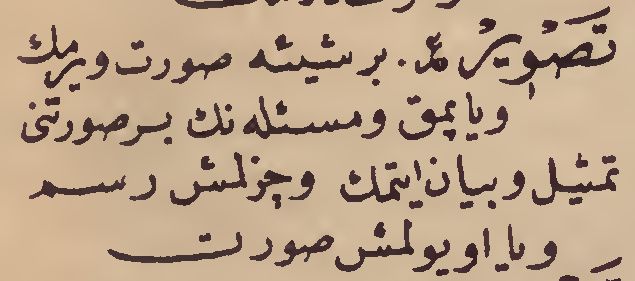 تَصْوِيرْ عر. بر شیئه صورت ویرمك
ویاپمق ومسئله نك بر صورتنی
تمثیل وبیان ایتمك وچزلمش رسم
ویا اویولمش صورت